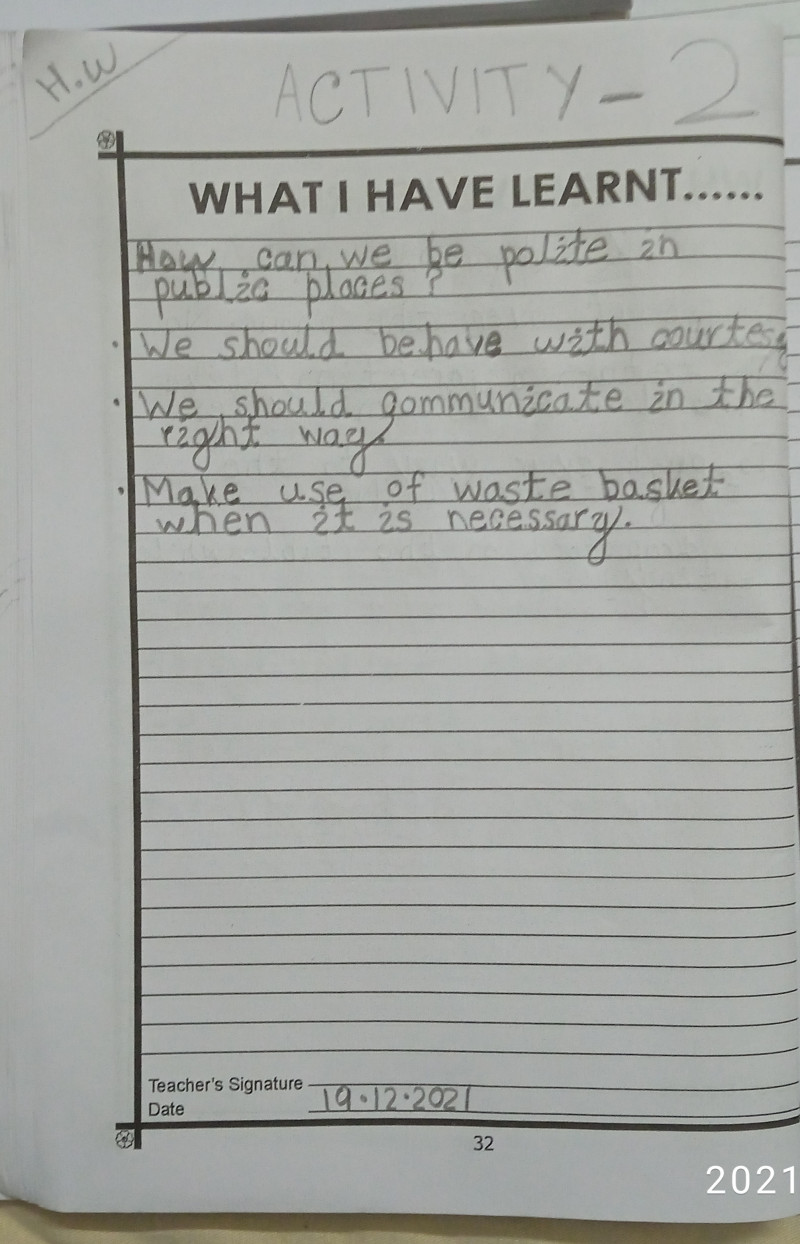 H.W
ACTIVITY - 2
WHAT I HAVE LEARNT......
How can we be polite in
public places ?
• We should behave with courtesy
• We should gommunicate in the
right way
• Make use of waste basket
when it is necessary.
Teacher's Signature
Date 19.12.2021
32
2021